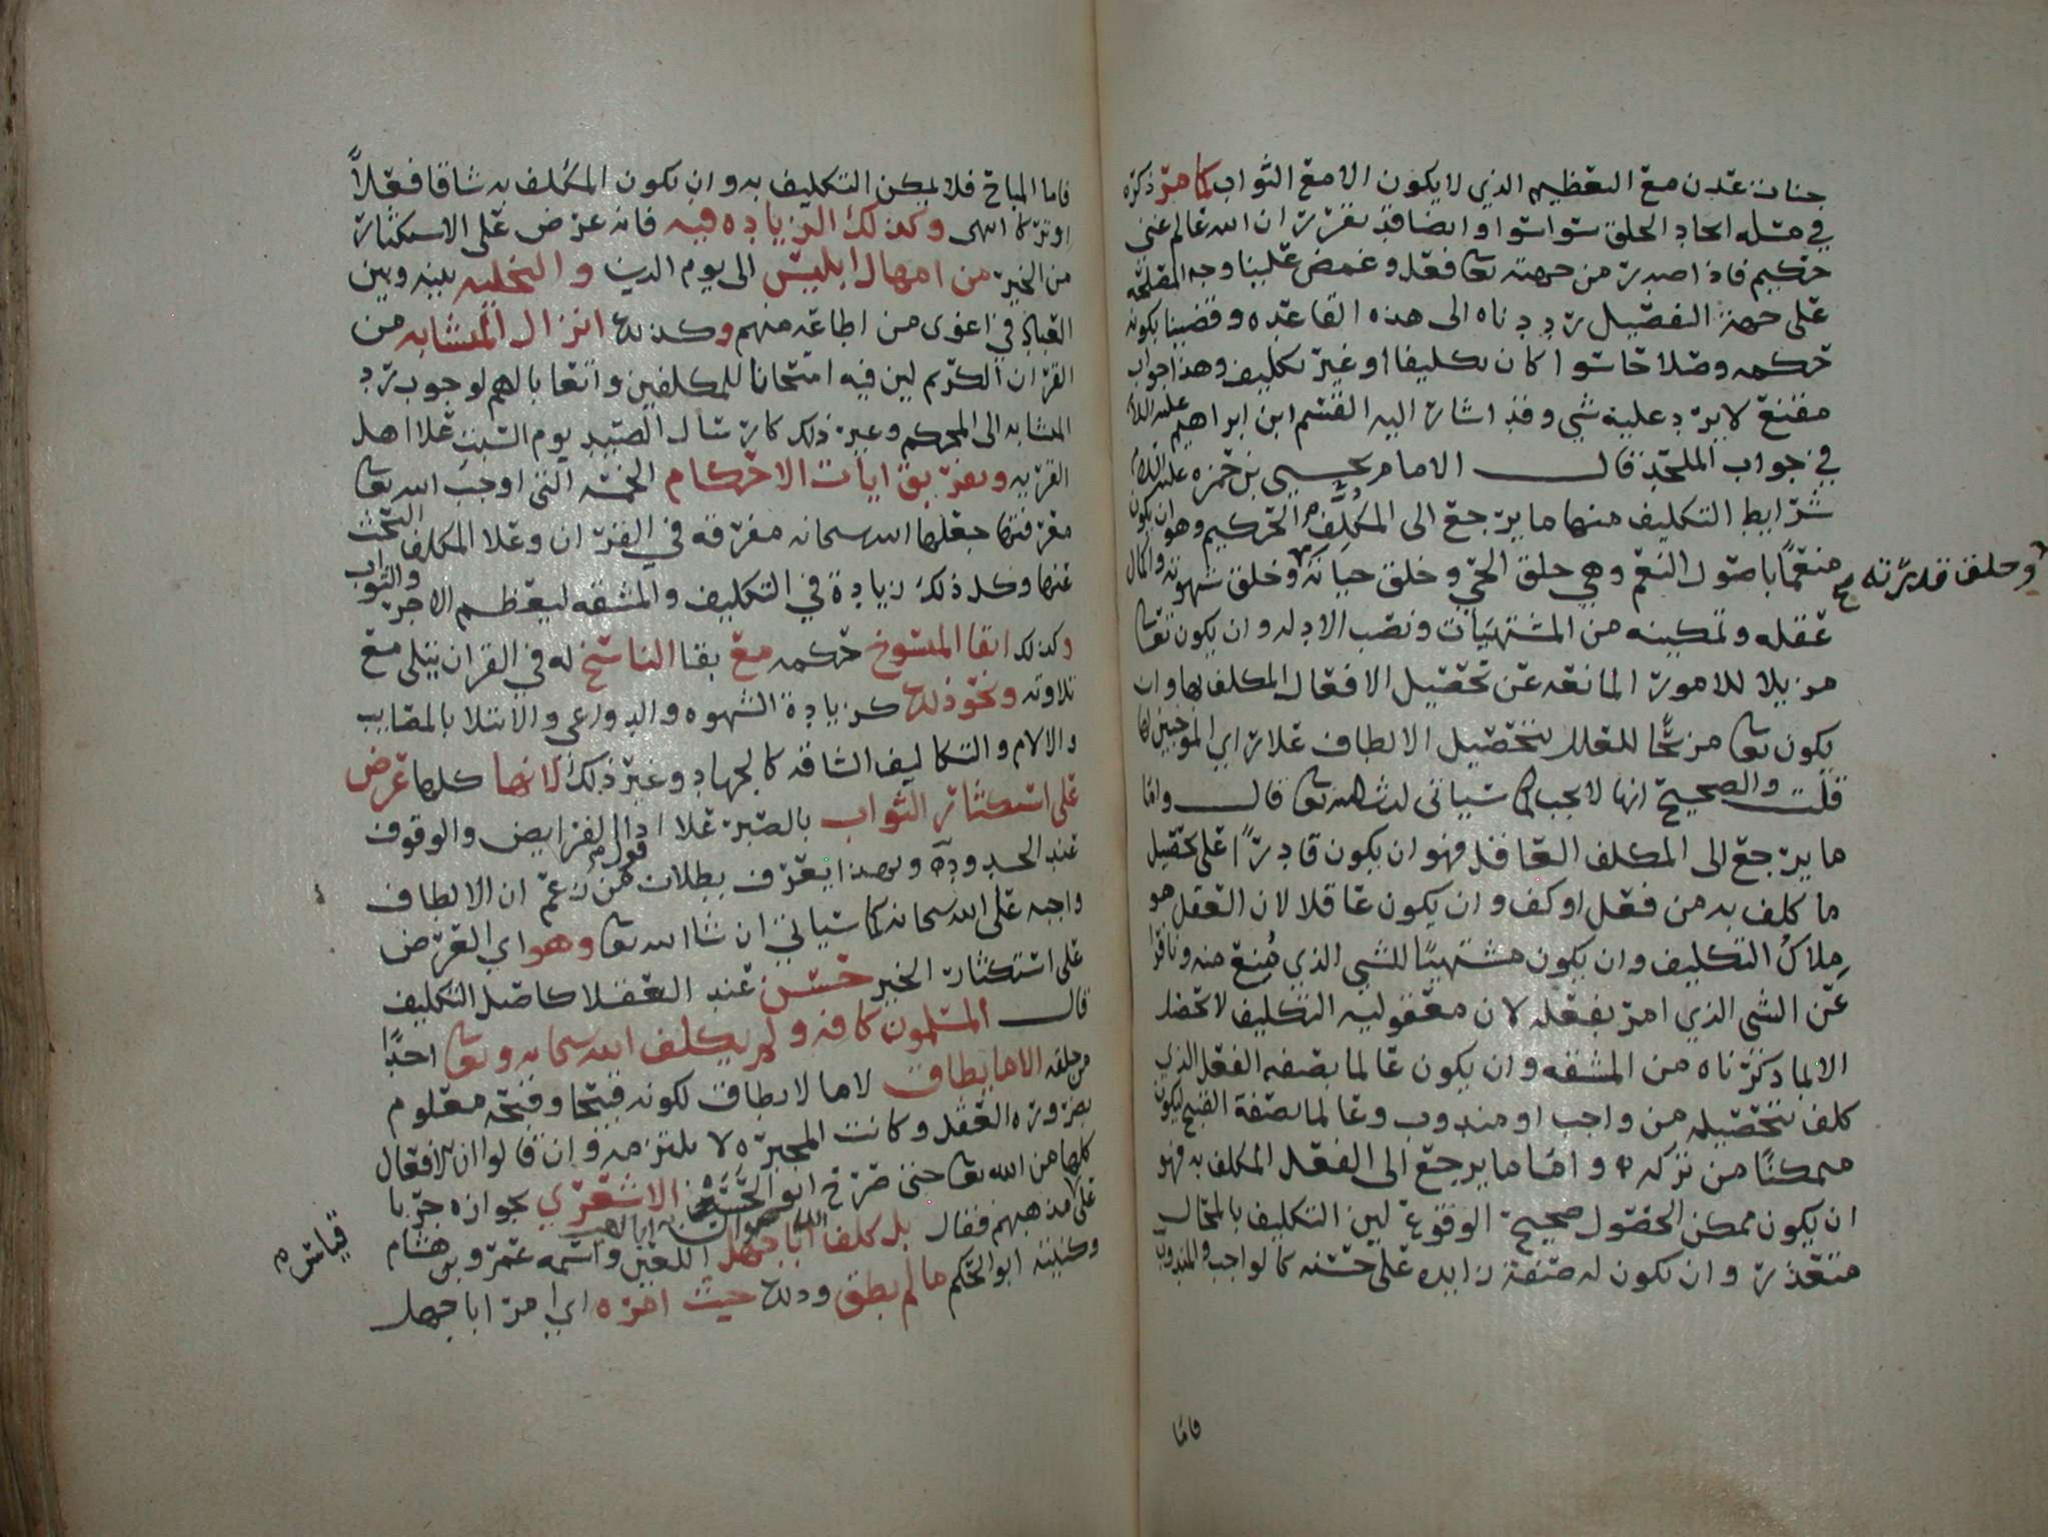 جنات عدن مع التعظيم الذي لا يكون الا مع الثواب كما مر ذكره
في مسله ايجاد الخلق سوا سوا وايضا فقد تقرر ان الله عالم غني
حكيم فاذا صدر من جهته تعا فعل وغمض علينا وجه المصلحه
على جهة التفصيل رددناه الى هذه القاعده وقضينا بكونه
حكمه وصلاحا سوا كان تكليفا او غير تكليف وهذا جواب
مقنع لا يرد عليه شي وقد اشار اليه القسم ابن ابراهيم عليه السلام
في جواب الملحد قال الامام يحيى بن حمزه عليه السلام
شرايط التكليف منها ما يرجع الى المكلِّف الحكيم وهو ان يكون
منعمًا باصول النعم وهي خلق الحي وخلق حياته وخلق شهوته واكمال
وخلق قدرته
عقله وتمكينه من المشتهيات ونصب الادله وان يكون تعا
مزيلا للامور المانعه عن تحصيل الافعال المكلف بها وان
يكون تعا مزيحًا للعلل بتحصيل الالطاف علا راي الموجبين لها
قلت والصحيح انها لا يجب كما سياتي ان شا الله تعا قال واما
ما يرجع الى المكلف العاقل فهو ان يكون قادرًا على تحصيل
ما كلف به من فعل او كف وان يكون عاقلا لان العقل هو
مِلاكُ التكليف وان يكون مشتهيًا للشي الذي مُنع منه ونافرا
عن الشي الذي امر بفعله لان معقوليه التكليف لا تحصل
الا بما ذكرناه من المشقه وان يكون عالما بصفه الفعل الذي
كلف بتحصيله من واجب او مندوب وعالما بصفة القبيح ليكون
ممكنًا من تركه واما ما يرجع الى الفعل المكلف به فهو
ان يكون ممكن الحصول صحيح الوقوع لين التكليف بالمحال
متعذر وان يكون له صفة زايده على حسنه كالواجب والمندوب
فاما
فاما المباح فلا يمكن التكليف به وان يكون المكلف به شاقا فعلاً
او تركا انتهى وكذلك الزياده فيه فانه عرض على الاستكثار
من الخير من امهال ابليس الى يوم الدين والتخليه بينه وبين
العباد في اغوى من اطاعه منهم وكذلك انزال المتشابه من
القران الكريم لين فيه امتحانا للمكلفين واتعابا لهم لوجوب رد
المتشابه الى المحكم وغير ذلك كارسال الصيد يوم السبت علا اهل
القريه وتفريق ايات الاحكام الخمسه التي اوجب الله تعا
معرفتها جعلها الله سبحانه مفرقه في القران وعلا المكلف البحث
عنها وكل ذلك زيادة في التكليف والمشقه ليعظم الاجر والثواب
وكذلك ابقا المنسوخ حكمه مع بقا الناسخ له في القران يتلى مع
تلاوته ونحو ذلك كزيادة الشهوه والدواعي والابتلا بالمصايب
والالام والتكاليف الشاقه كالجهاد وغير ذلك لانها كلها عرض
على استكثار الثواب بالصبر علا ادا الفرايض والوقوف
عند الحدود وبهذا يعرف بطلان قول من زعم ان الالطاف
واجبه على الله سبحانه كما سياتي ان شا الله تعا وهو اي العرض
على استكثار الخير حسن عند العقلا كاصل التكليف
قال المسلمون كافه ولم يكلف الله سبحانه وتعا احدًا
من خلقه الا ما يطاق لا ما لا يطاق لكونه قبيحا وقبحه معلوم
بضرورة العقل وكانت المجبره لا يلتزمه وان قالوا ان الافعال
كلها من الله تعا حتى صرح ابو الحسن الاشعري بجوازه جريا
على مذهبهم فقال بل كلف الله ابا جهل اللعين واسمه عمرو بن هشام
قياس
وكنيته ابو الحكم ما لم يطق وذلك حيث امره اي امر ابا جهل